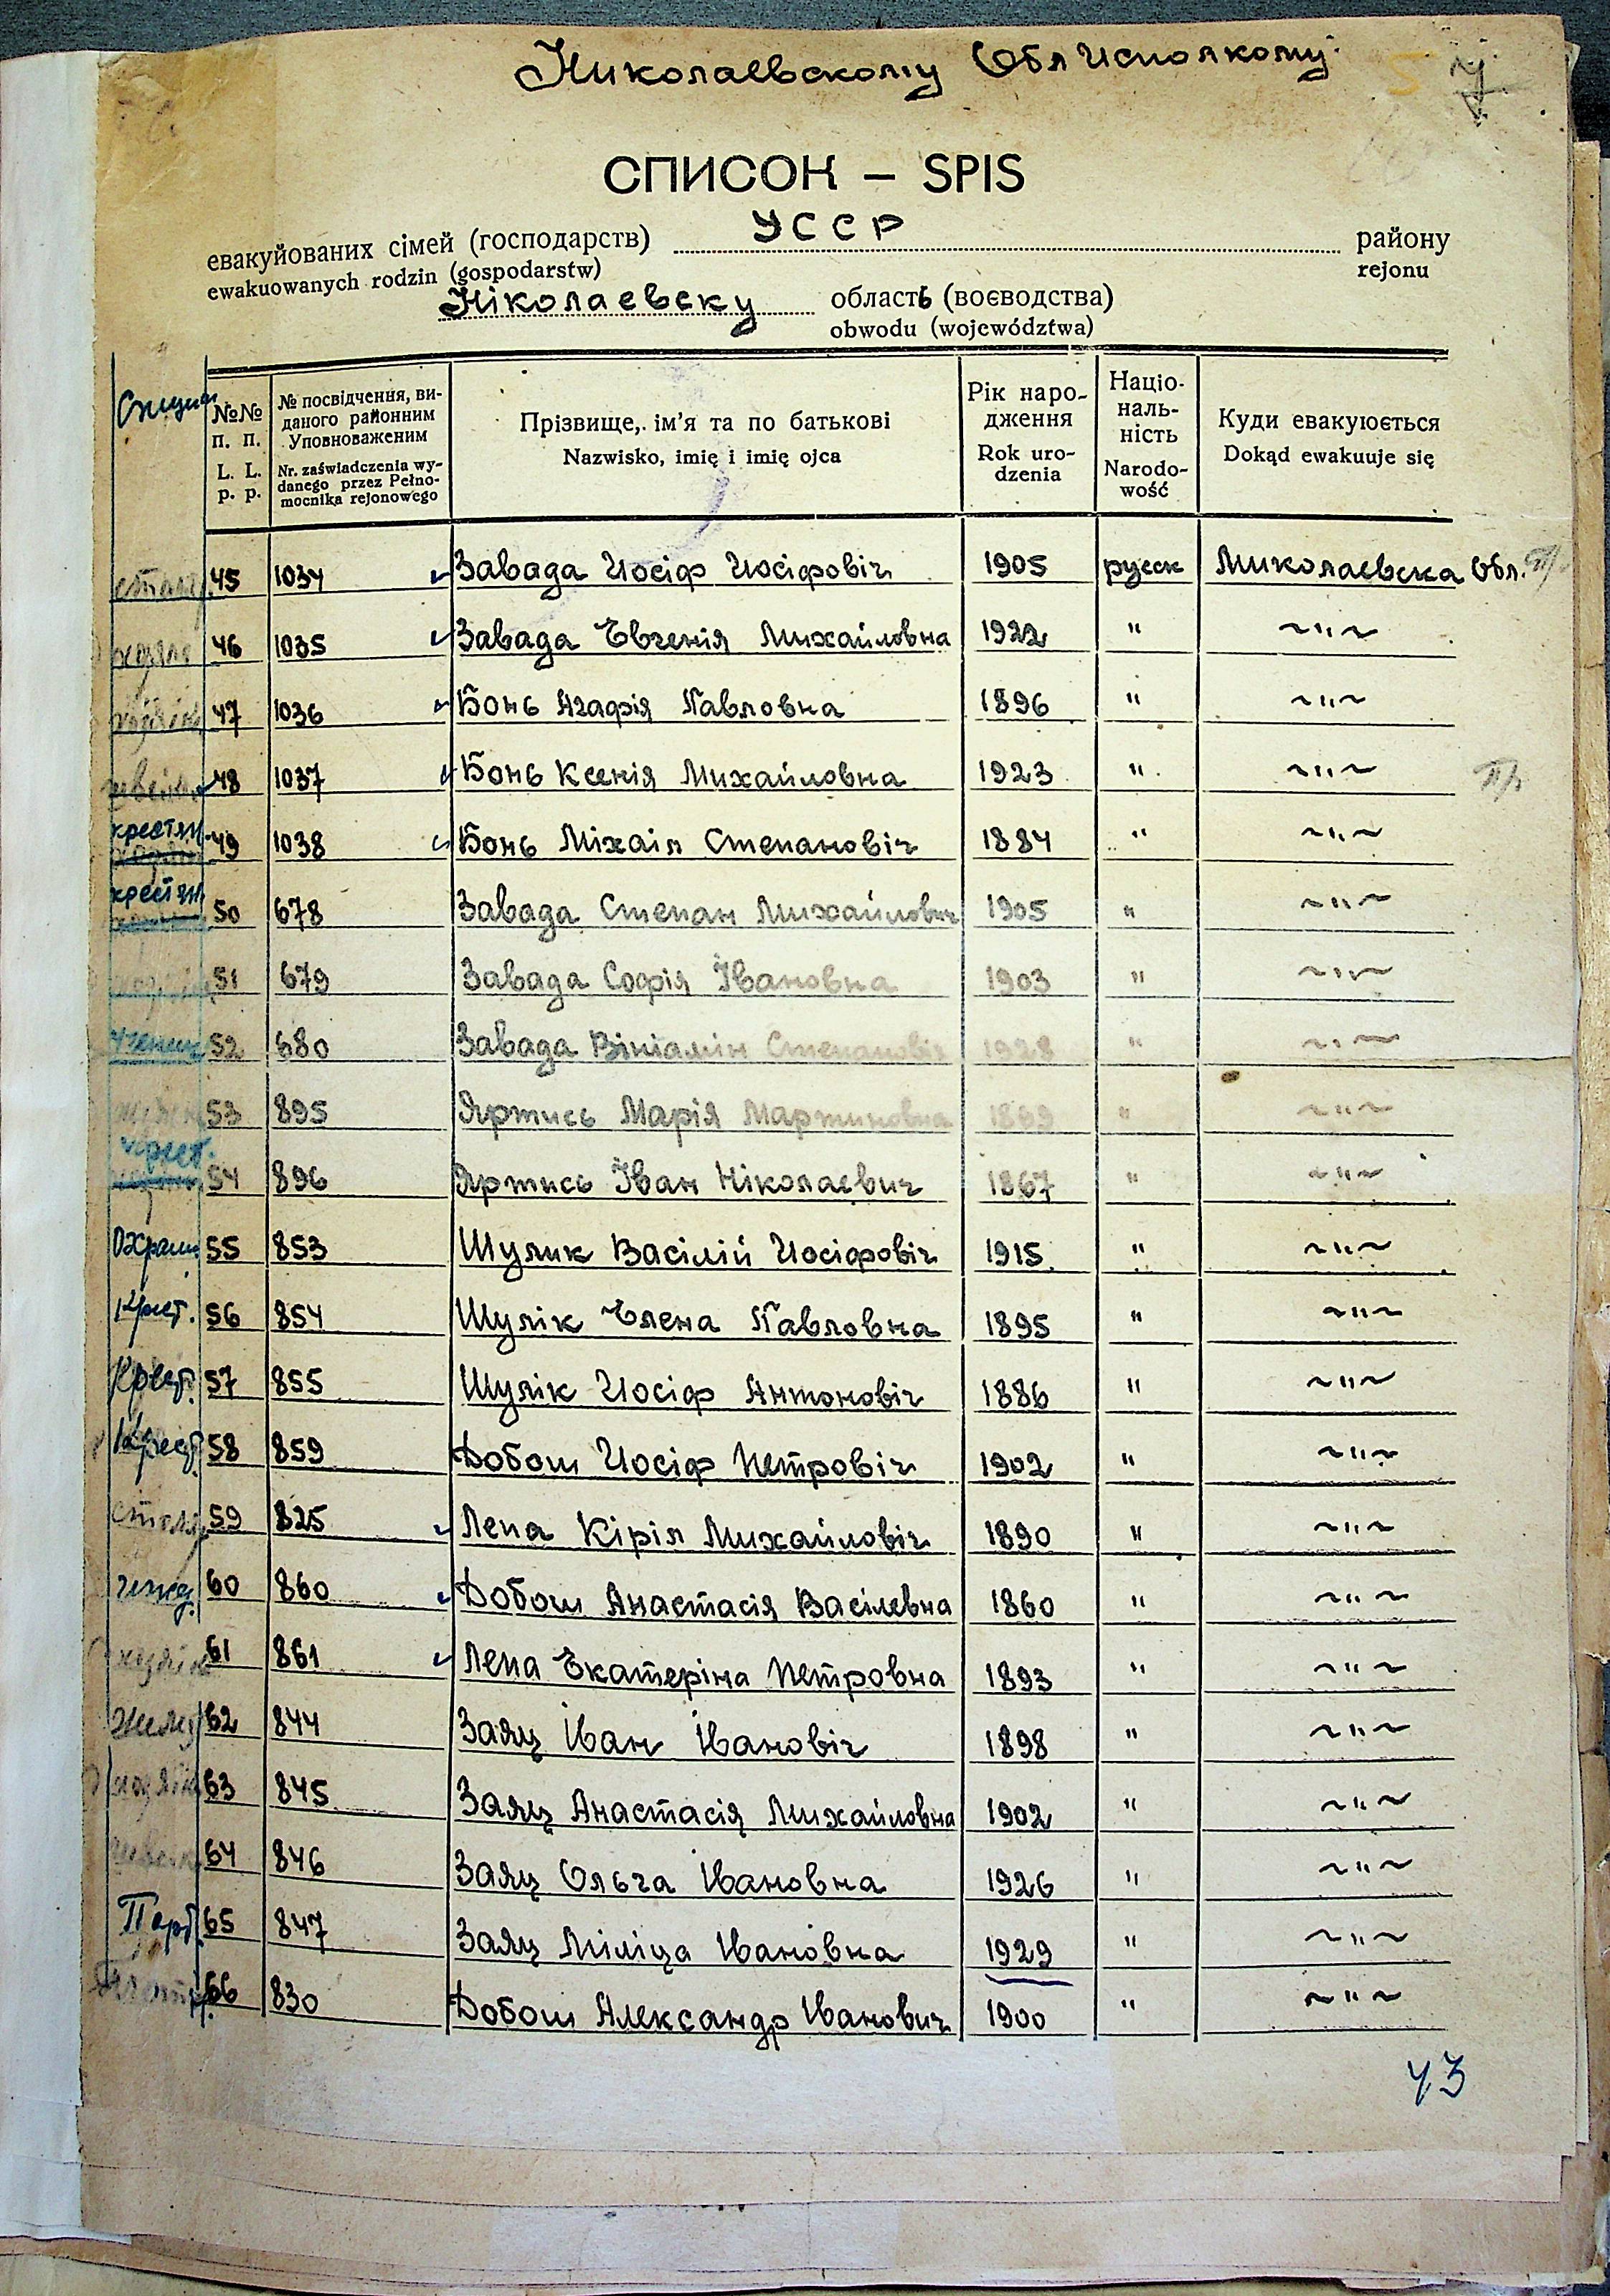 Николаевскому Облисполкому
СПИСОК – SPIS
евакуйованих сімей (господарств) УССР району
ewakuowanych rodzin (gospodarstw) rejonu
Ніколаевску область (воєводства)
obwodu (województwa)
№№ п. п. L. L. p. p. № посвідчення, виданого районним Уповноваженим Nr. zaświadczenia wydanego przez Pełnomocnika rejonowego Прізвище, ім'я та по батькові Nazwisko, imię i imię ojca Рік народження Rok urodzenia Національність Narodowość Куди евакуюється Dokąd ewakuuje się
45 1034 Завада Иосіф Иосіфовіч 1905 русск Миколаевска Обл.
46 1035 Завада Евгенія Михайловна 1922 " ~"~
47 1036 Бонь Агафія Павловна 1896 " ~"~
48 1037 Бонь Ксенія Михайловна 1923 " ~"~
крестян. 49 1038 Бонь Міхаіл Степановіч 1884 " ~"~
крестян. 50 678 Завада Степан Михайлович 1905 " ~"~
51 679 Завада Софія Івановна 1903 " ~"~
ученик 52 680 Завада Вініамін Степановіч 1928 " ~"~
53 895 Яртись Марія Мартиновна 1869 " ~"~
крест. 54 896 Яртись Іван Ніколаевич 1867 " ~"~
Охран. 55 853 Шулик Васілій Иосіфовіч 1915 " ~"~
Крест. 56 854 Шулік Елена Павловна 1895 " ~"~
Крест. 57 855 Шулік Иосіф Антоновіч 1886 " ~"~
Крест. 58 859 Добош Иосіф Петровіч 1902 " ~"~
столяр 59 825 Лепа Кіріл Михайловіч 1890 " ~"~
ижд. 60 860 Добош Анастасія Васілевна 1860 " ~"~
61 861 Лепа Екатеріна Петровна 1893 " ~"~
62 844 Заяц Іван Івановіч 1898 " ~"~
63 845 Заяц Анастасія Михайловна 1902 " ~"~
64 846 Заяц Ольга Івановна 1926 " ~"~
65 847 Заяц Міліца Івановна 1929 " ~"~
66 830 Добош Александр Іванович 1900 " ~"~
43